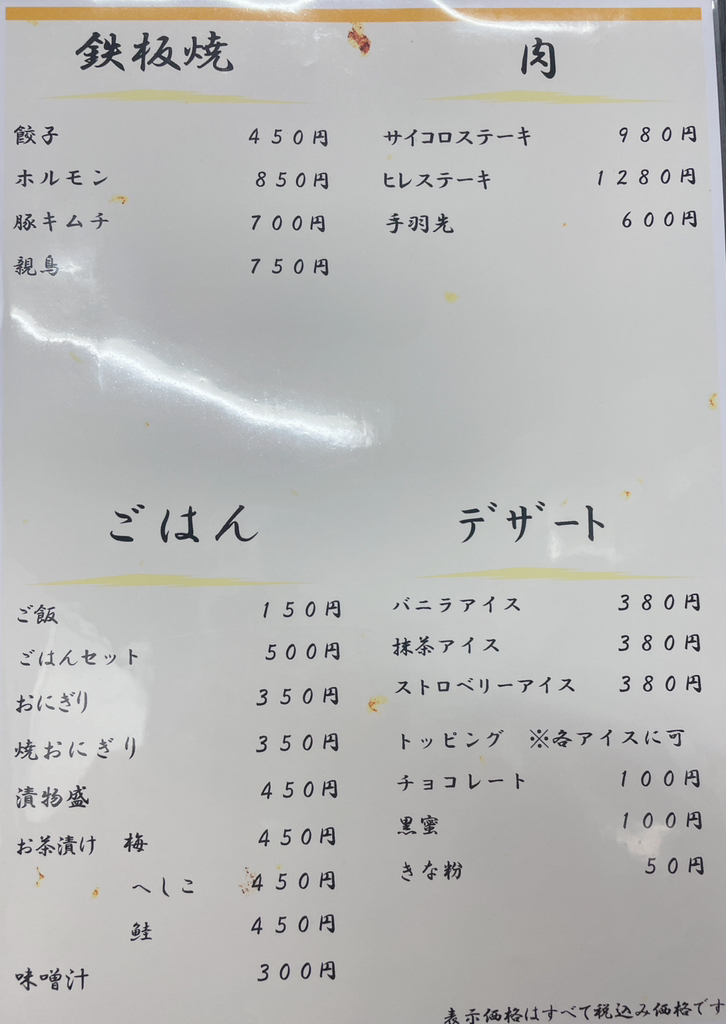 鉄板焼
餃子 450円
ホルモン 850円
豚キムチ 700円
親鳥 750円
肉
サイコロステーキ 980円
ヒレステーキ 1280円
手羽先 600円
ごはん
ご飯 150円
ごはんセット 500円
おにぎり 350円
焼おにぎり 350円
漬物盛 450円
お茶漬け 梅 450円
へしこ 450円
鮭 450円
味噌汁 300円
デザート
バニラアイス 380円
抹茶アイス 380円
ストロベリーアイス 380円
トッピング ※各アイスに可
チョコレート 100円
黒蜜 100円
きな粉 50円
表示価格はすべて税込み価格です